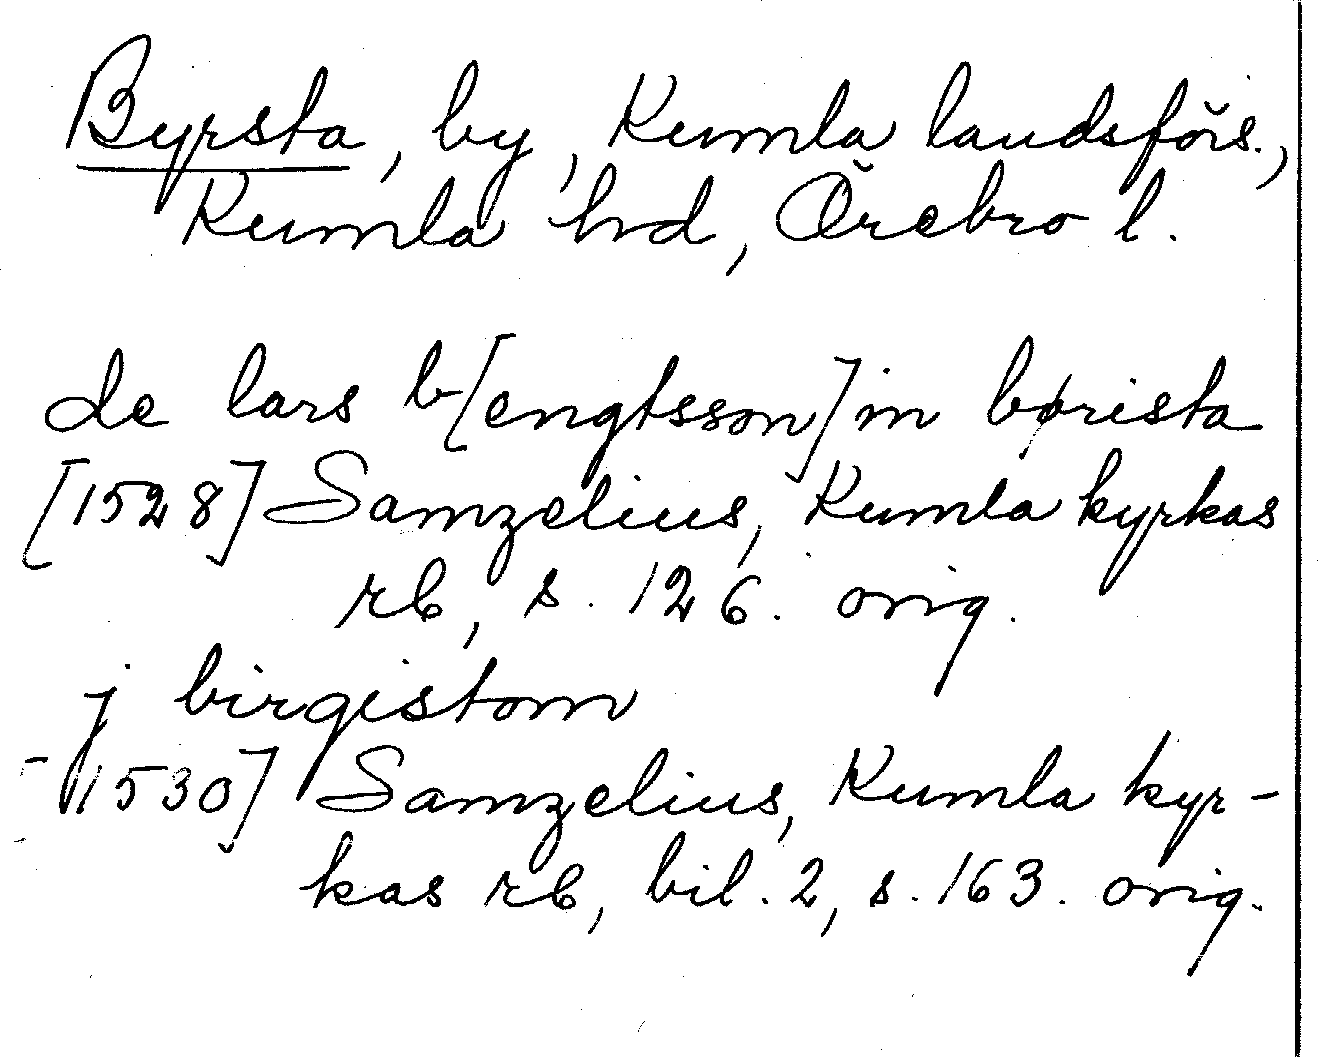 Byrsta, by, Kumla landsförs.,
Kumla hd, Örebro l.
de lars b[engtsson] in børista
[1528] Samzelius, Kumla kyrkas
rb, s. 126. orig.
j birgistom
[1530] Samzelius, Kumla kyr-
kas rb, bil. 2, s. 163. orig.